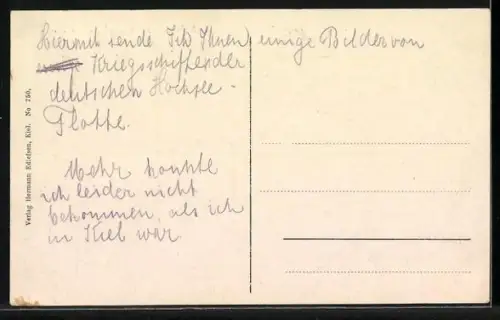 Hiermit sende Ich Ihnen einige Bilder von
Kriegsschiffen der
deutschen Hochsee-
Flotte.
Mehr konnte
ich leider nicht
bekommen, als ich
in Kiel war
Verlag Hermann Edlefsen, Kiel. No 750.